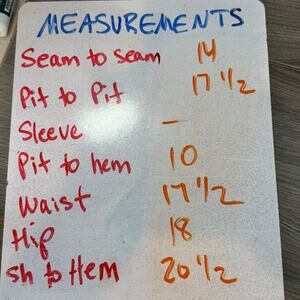 MEASUREMENTS
Seam to seam 14
Pit to Pit 17 1/2
Sleeve —
Pit to hem 10
Waist 17 1/2
Hip 18
sh to Hem 20 1/2